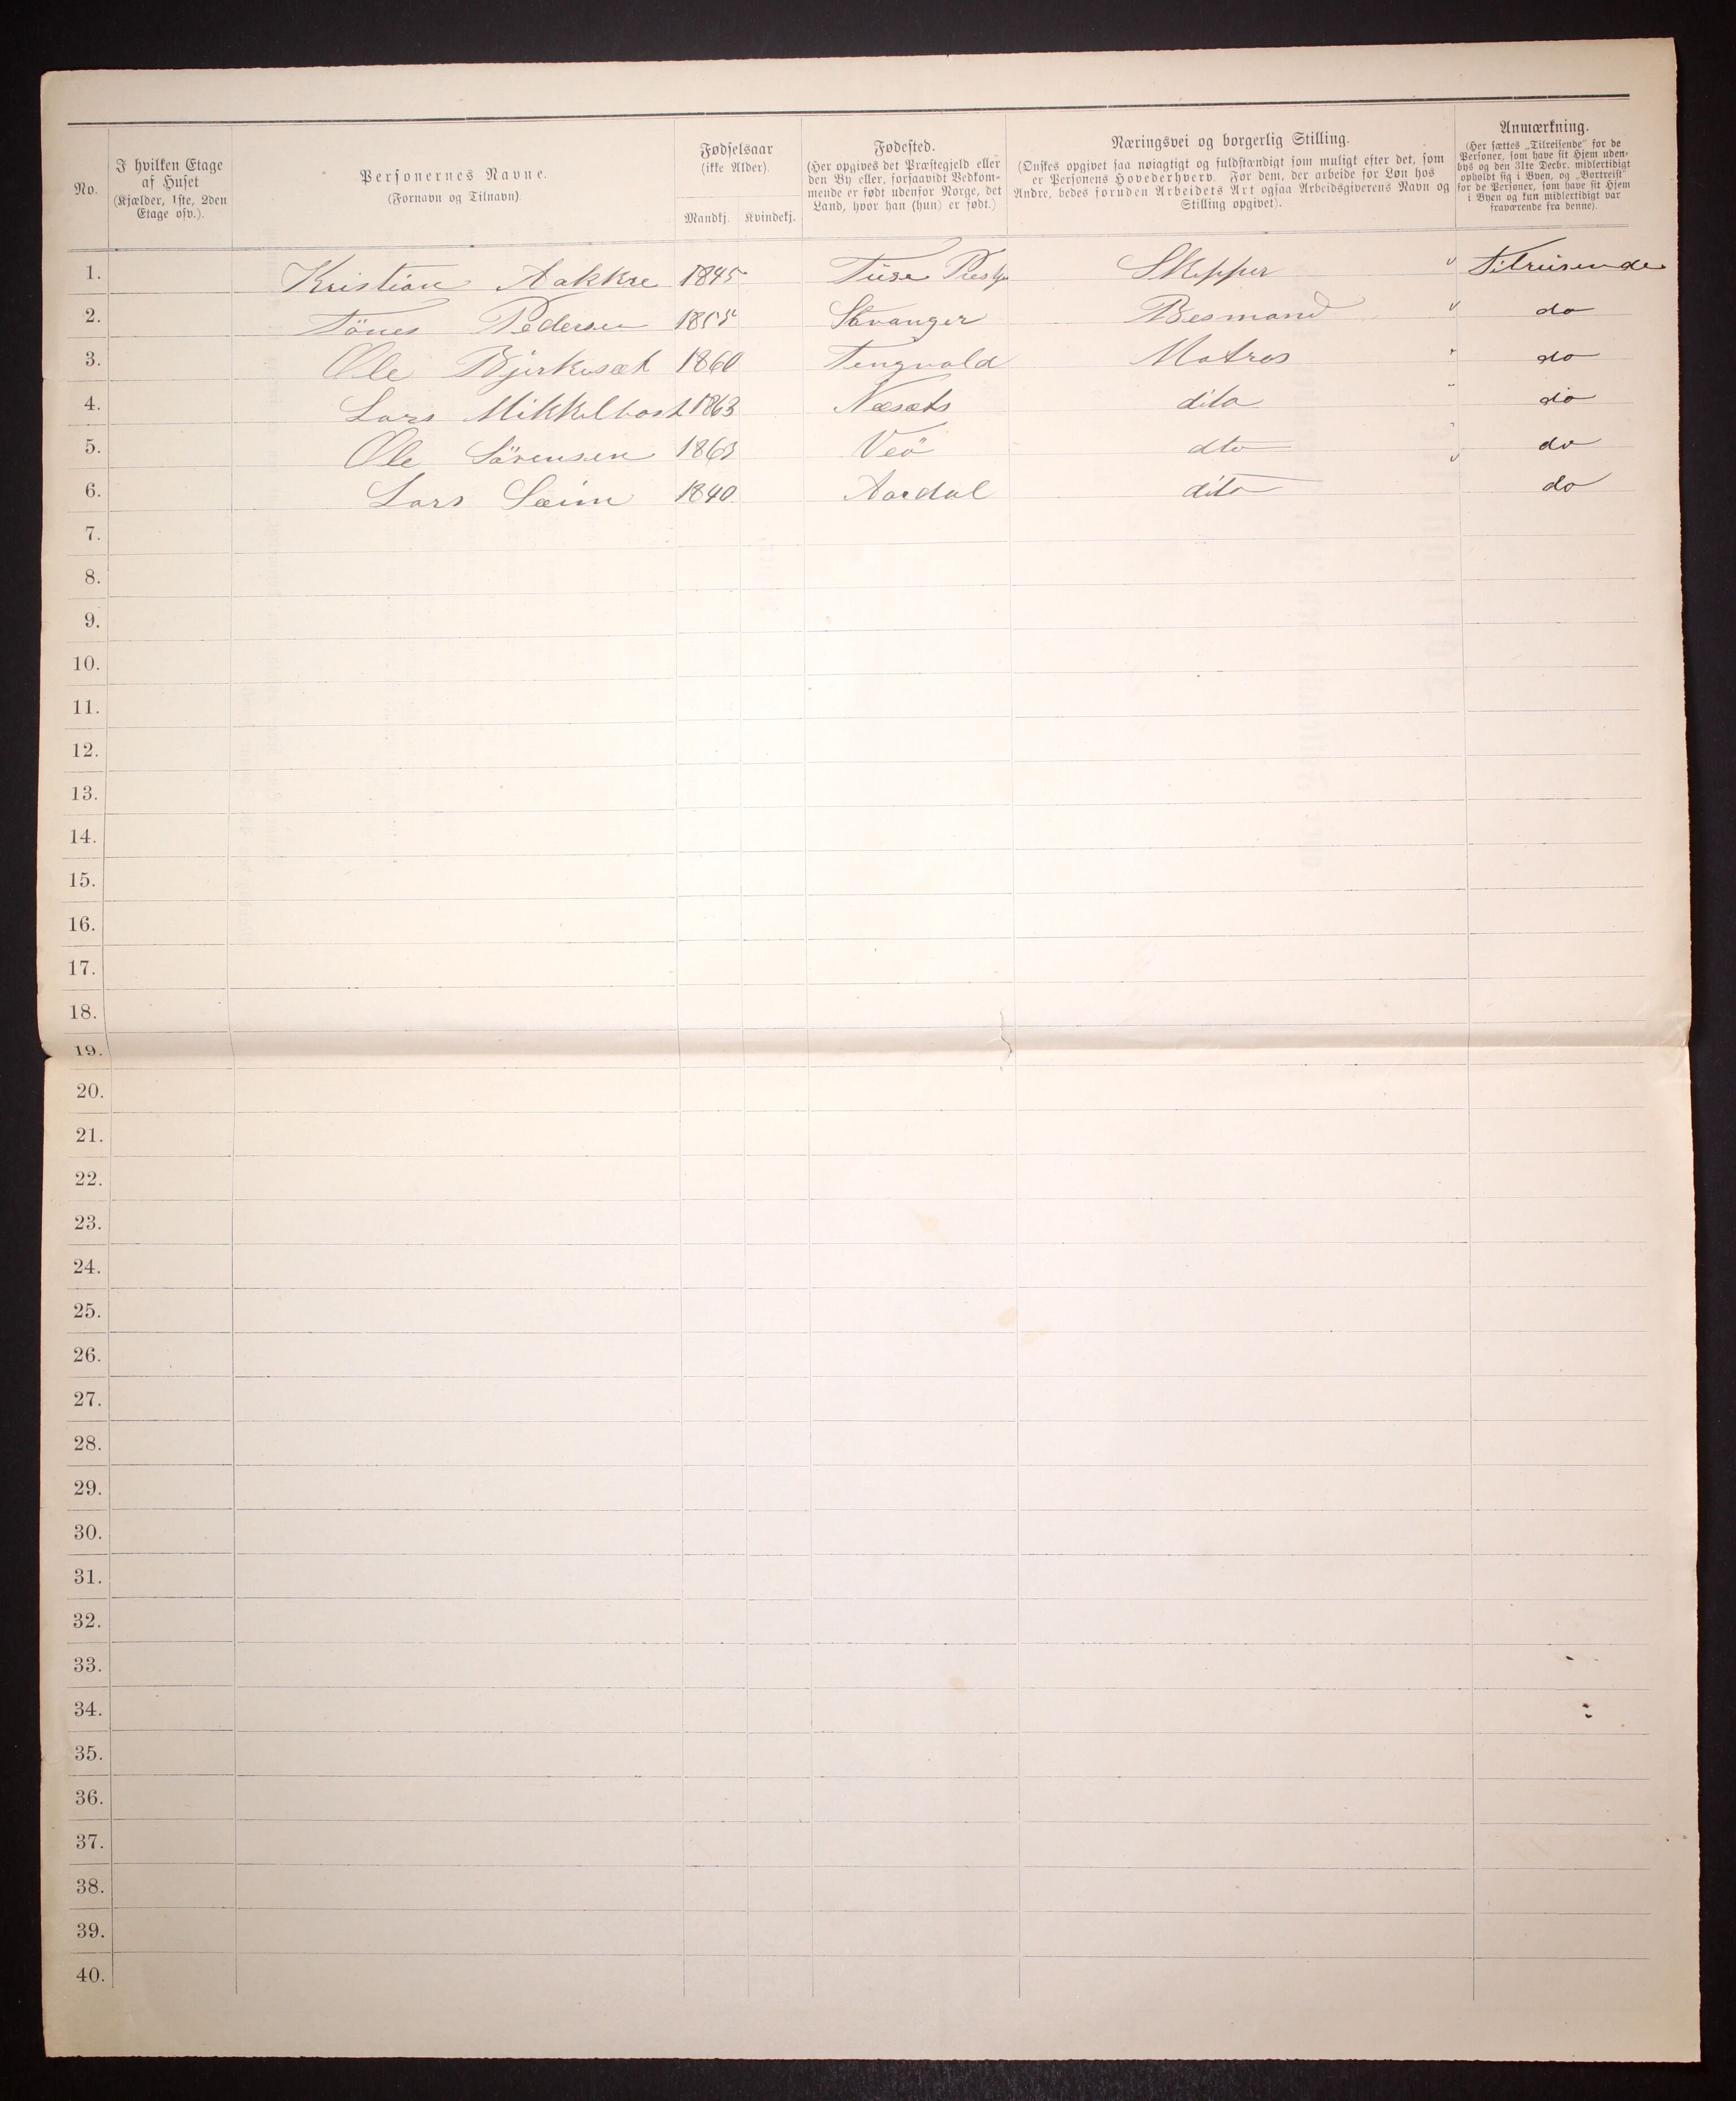 No.
I hvilken Etage
af Huset
(Kjælder, 1ste, 2den
Etage osv.).
Personernes Navne.
(Fornavn og Tilnavn).
Fødselsaar
(ikke Alder).
Mandkj. Kvindekj.
Fødested.
(Her opgives det Præstegjeld eller
den By eller, forsaavidt Vedkom-
mende er født udenfor Norge, det
Land, hvor han (hun) er født.)
Næringsvei og borgerlig Stilling.
(Ønskes opgivet saa nøiagtigt og fuldstændigt som muligt efter det, som
er Personens Hovederhverv. For dem, der arbeide for Løn hos
Andre, bedes foruden Arbeidets Art ogsaa Arbeidsgiverens Navn og
Stilling opgivet).
Anmærkning.
(Her sættes „Tilreisende" for de
Personer, som have sit Hjem uden-
bys og den 31te Decbr. midlertidigt
opholdt sig i Byen, og „Bortreist"
for de Personer, som have sit Hjem
i Byen og kun midlertidigt var
fraværende fra denne).
1. Kristian Aakkre 1845 Skipper Tilreisende
2. Tönes Pedersen 1855 Stavanger Besmand do
3. Ole Bjerkesæt 1860 Tingvold Matros do
4. Lars Mikkelbost 1863 Næsæts dito do
5. Ole Sörensen 1863 Veö dto do
6. Lars Sæim 1840 Aardal dito do
7.
8.
9.
10.
11.
12.
13.
14.
15.
16.
17.
18.
19.
20.
21.
22.
23.
24.
25.
26.
27.
28.
29.
30.
31.
32.
33.
34.
35.
36.
37.
38.
39.
40.